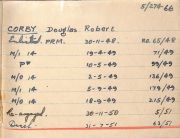 5/274-66
CORBY Douglas Robert
Enlisted PRM. 30-11-48. No. 65/48
M/I 14 19-4-49 71/49
PP 10-5-49 99/49
M/O 14 2-5-49 136/49
M/I 14 5-9-49 179/49
M/O 14 18-9-49 215/49
Re-engaged 30-11-50 5/51
31-7-51 62/51